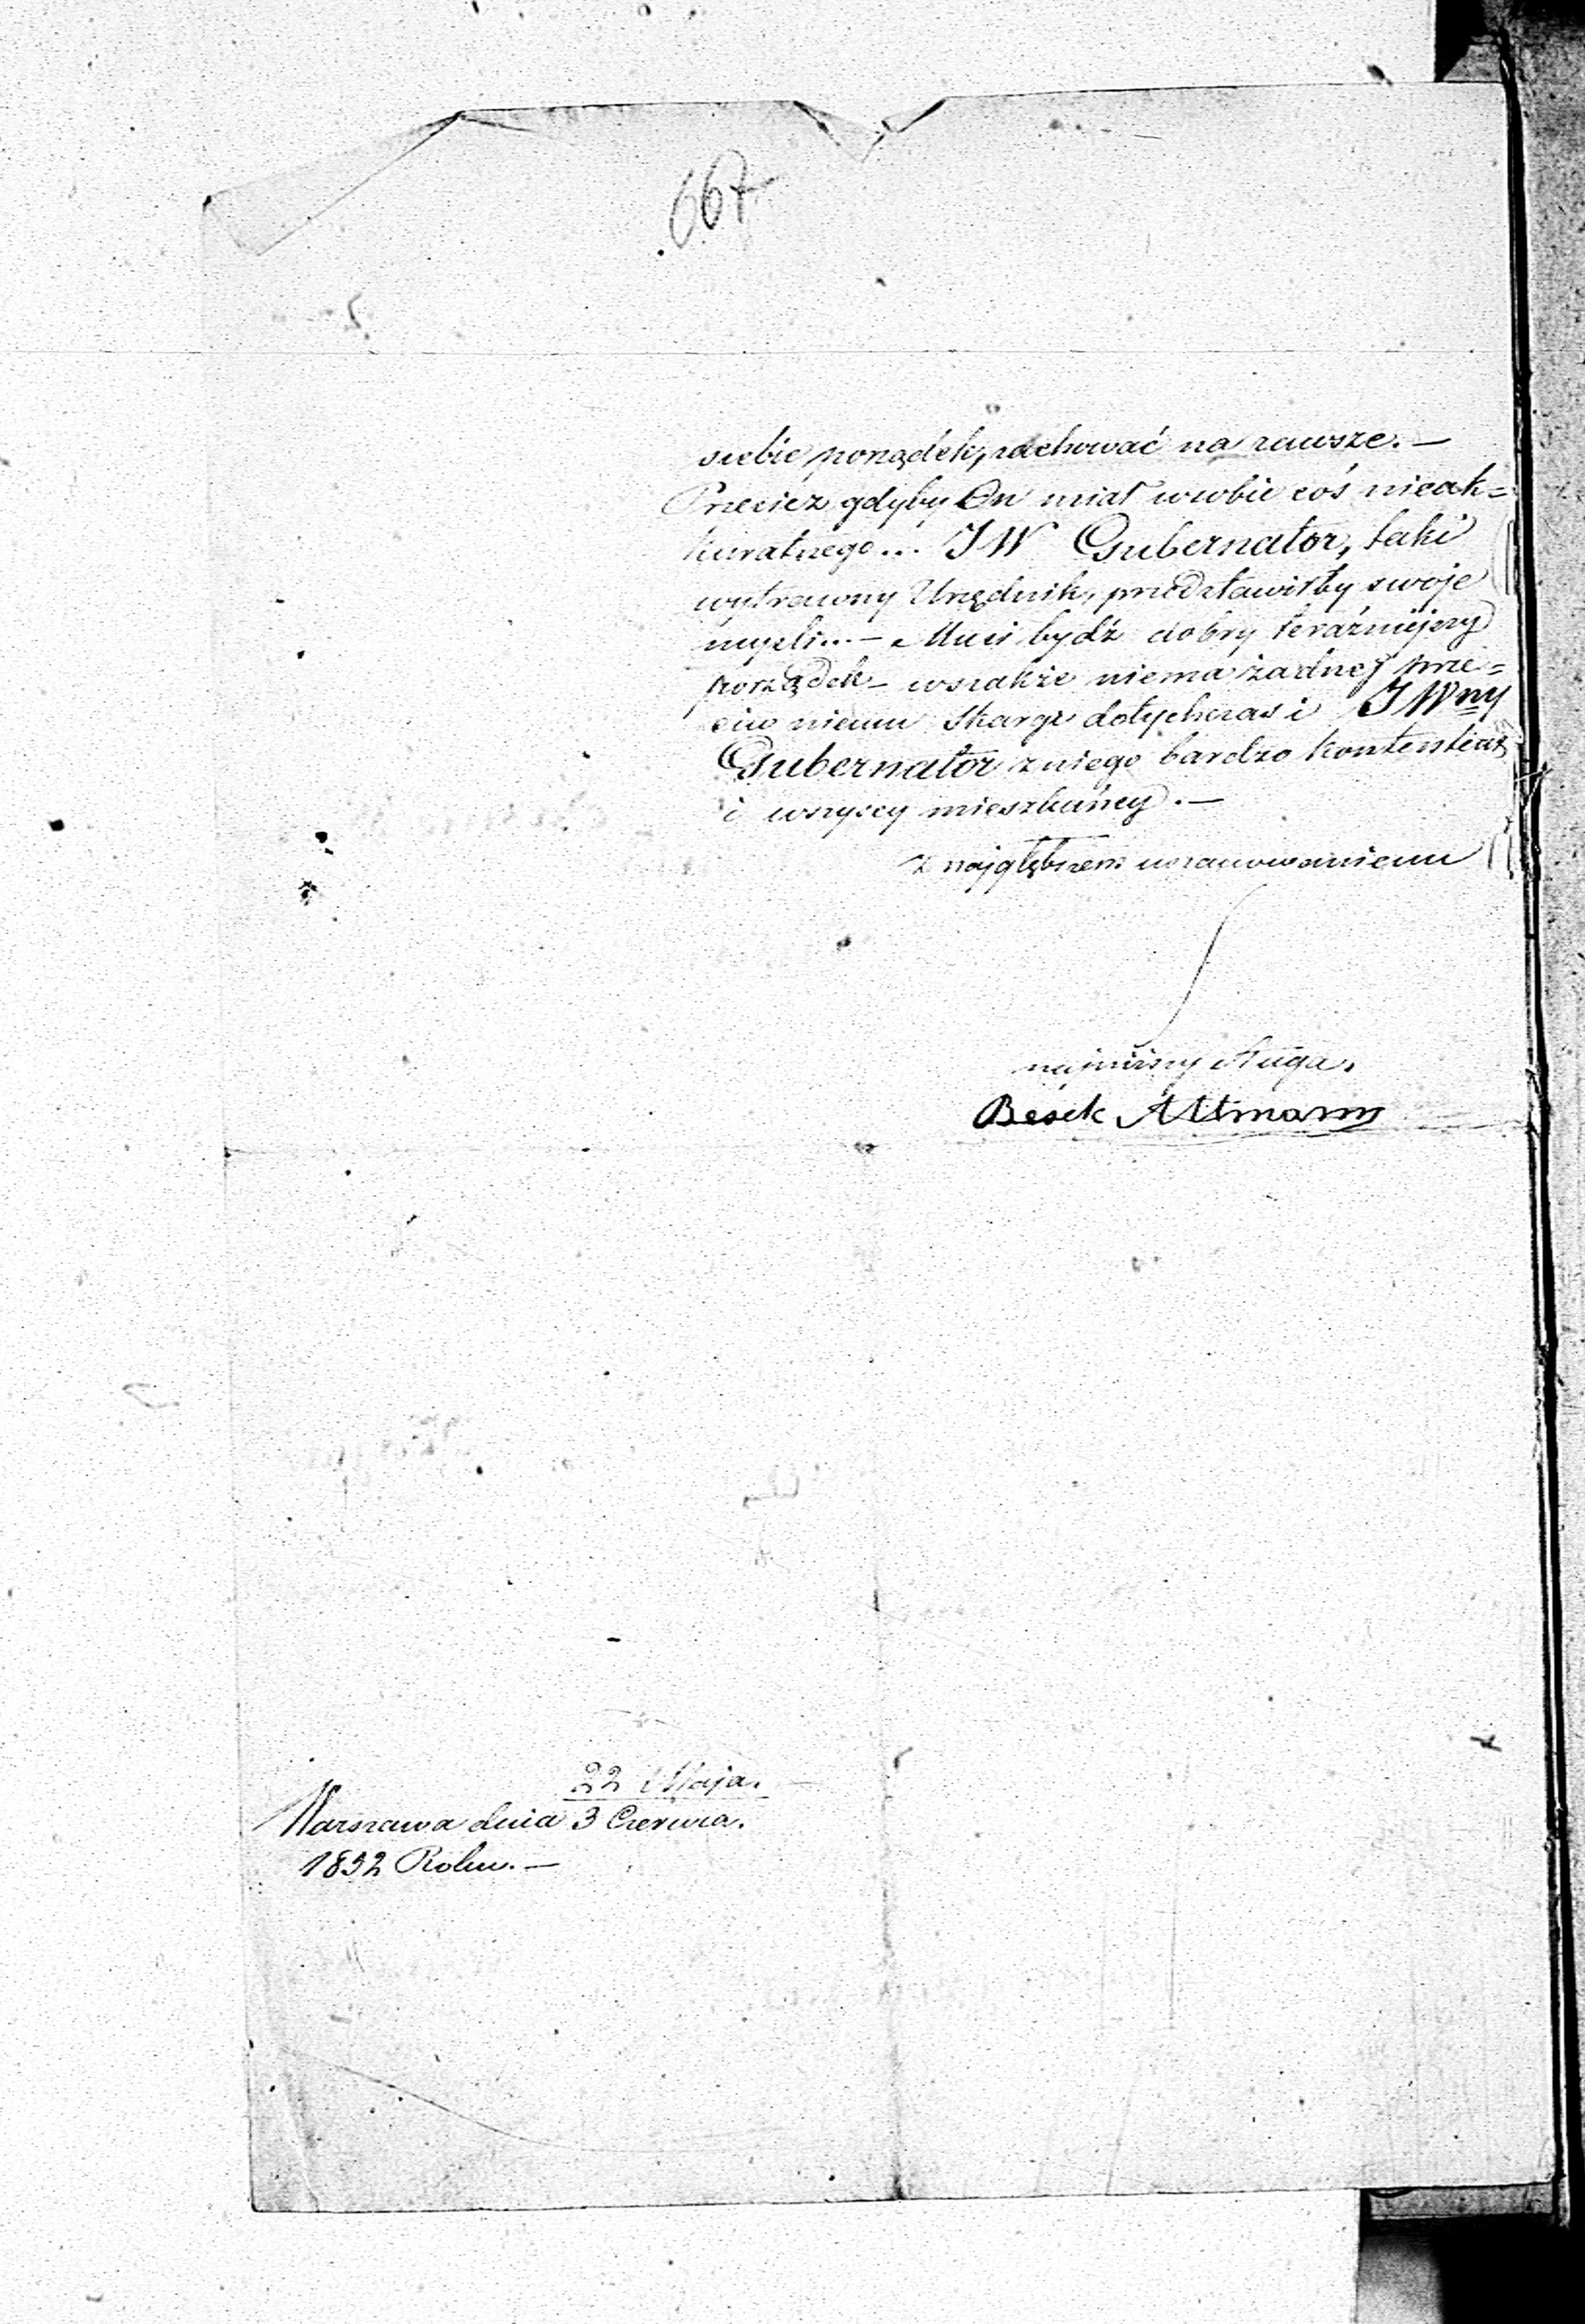 667
siebie porządek, zachować na zawsze. —
Przecież gdyby On miał w sobie coś nieak=
kuratnego... JW Gubernator, taki
wytrawny Urzędnik, przedstawiłby swoje
myśli... — Musi bydź dobry teraźniejszy
porządek — wszakże niema żadnej prze=
ciw niemu skargi dotychczas i JWny
Gubernator z niego bardzo kontentny
i wszyscy mieszkańcy. —
z najgłębszem uszanowaniem
najniższy sługa.
Besek Altmann
22 Maja.
Warszawa dnia 3 Czerwca.
1852 Roku. —